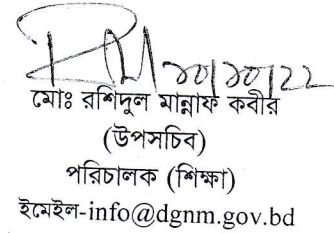 ২০/১০/২২
মোঃ রশিদুল মান্নাফ কবীর
(উপসচিব)
পরিচালক (শিক্ষা)
ইমেইল-info@dgnm.gov.bd